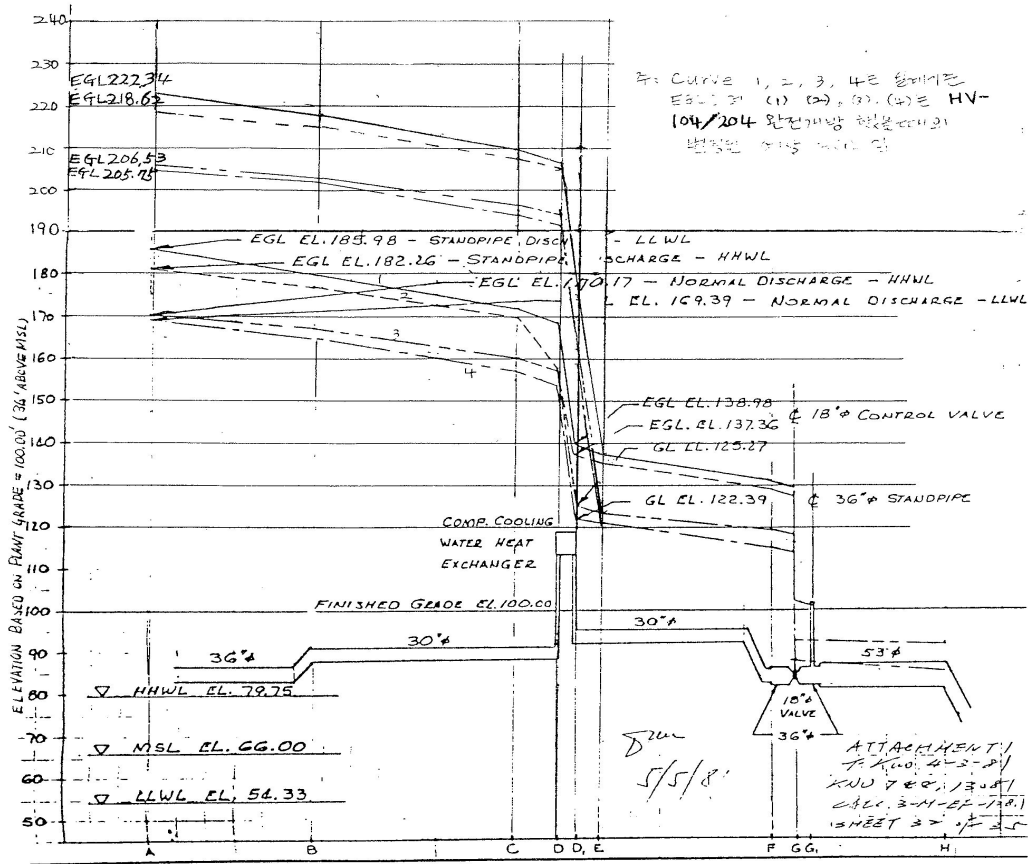 240
230
220
210
200
190
180
170
160
150
140
130
120
110
100
90
80
70
60
50
ELEVATION BASED ON PLANT GRADE = 100.00' (34' ABOVE MSL)
EGL 222.34
EGL 218.62
EGL 206.53
EGL 205.75
주: Curve 1, 2, 3, 4는
(1) (2), (3). (4)는 HV-
104/204 완전개방
EGL EL. 185.98 - STANDPIPE DISC - LLWL
EGL EL. 182.26 - STANDPIPE ISCHARGE - HHWL
EGL EL. 170.17 - NORMAL DISCHARGE - HHWL
L EL. 169.39 - NORMAL DISCHARGE - LLWL
2
3
4
EGL EL. 138.98
℄ 18"φ CONTROL VALVE
EGL. EL. 137.36
GL EL. 125.27
GL EL. 122.39
℄ 36"φ STANDPIPE
COMP. COOLING
WATER HEAT
EXCHANGER
FINISHED GRADE EL. 100.00
36"φ
30"φ
30"φ
53"φ
18"φ
VALVE
36"φ
HHWL EL. 79.75
MSL EL. 66.00
LLWL EL. 54.33
5/5/8
ATTACHMENT 1
4-3-81
KNU 7&8, 13.81
CALC. 3-M-EF-
SHEET OF 35
A B C D D₁ E F G G₁ H